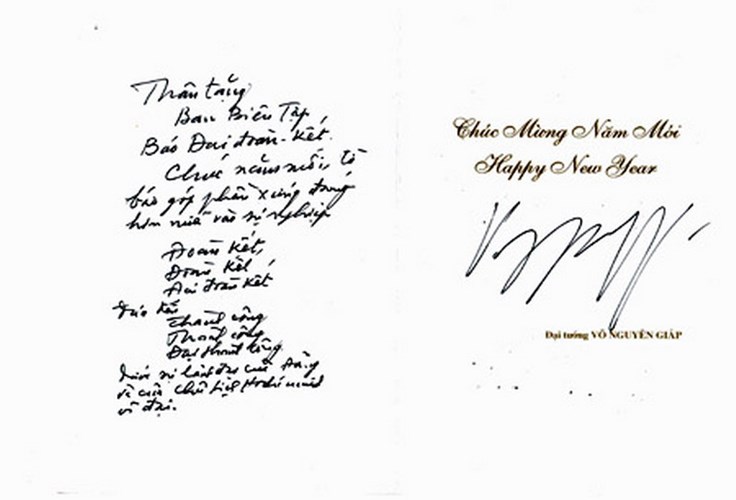 Thân tặng
Ban Biên Tập
Báo Đại đoàn-Kết.
Chúc năm mới, tờ
báo góp phần xứng đáng
hơn nữa vào sự nghiệp
Đoàn kết,
Đoàn kết,
Đại đoàn kết
Thành công
Thành công
Đại thành công
dưới sự lãnh đạo của Đảng
và của Chủ tịch Hồ Chí Minh
vĩ đại.
Chúc Mừng Năm Mới
Happy New Year
Đại tướng VÕ NGUYÊN GIÁP